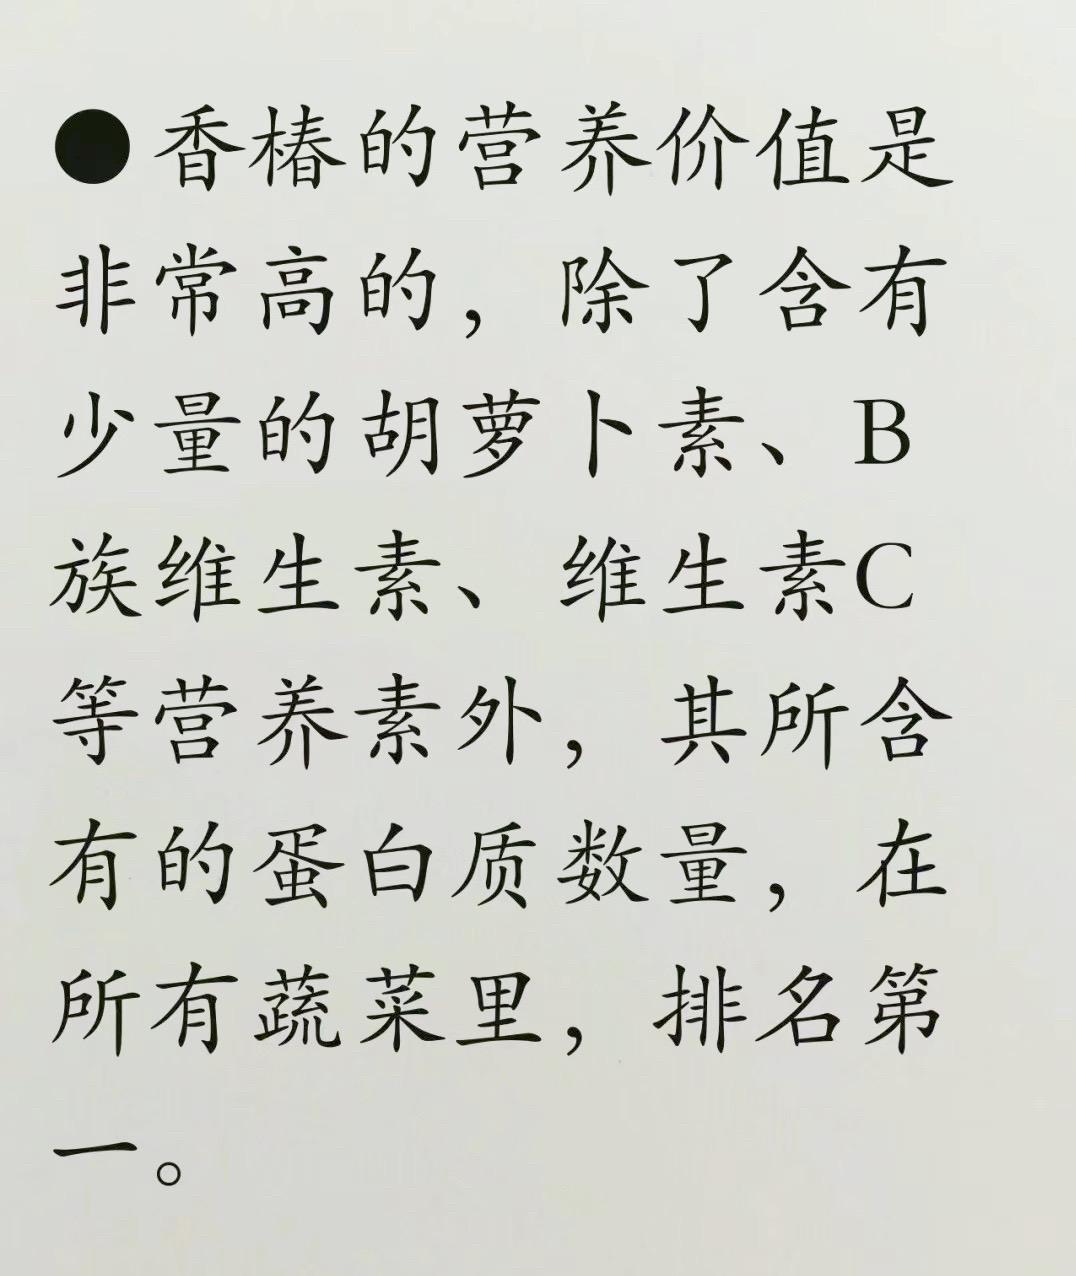 ●香椿的营养价值是
非常高的，除了含有
少量的胡萝卜素、B
族维生素、维生素C
等营养素外，其所含
有的蛋白质数量，在
所有蔬菜里，排名第
一。